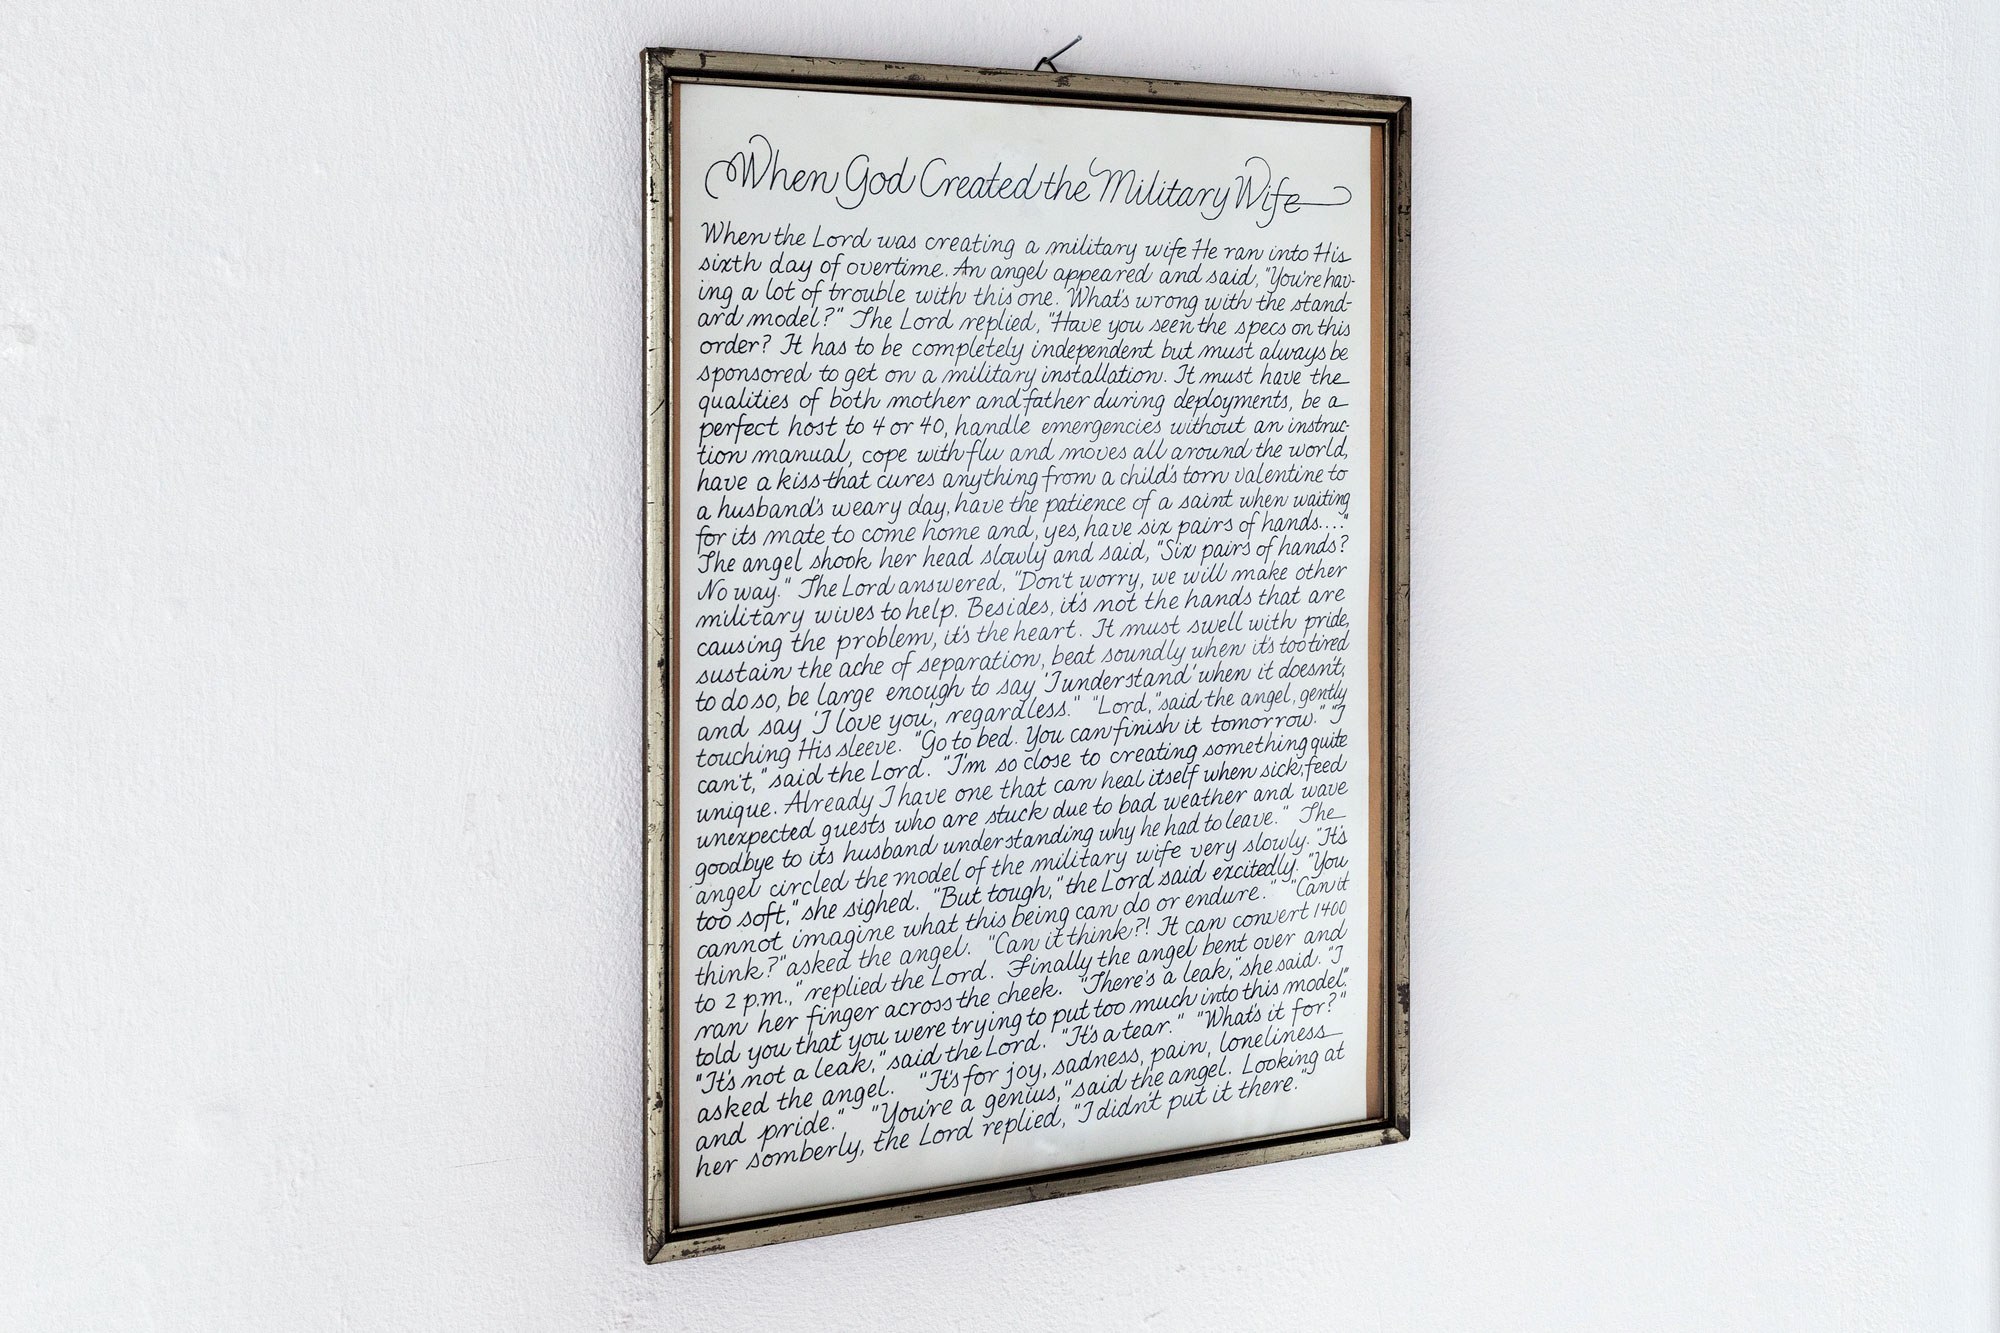 When God Created the Military Wife
When the Lord was creating a military wife He ran into His
sixth day of overtime. An angel appeared and said, "You're hav-
ing a lot of trouble with this one. What's wrong with the stand-
ard model?" The Lord replied, "Have you seen the specs on this
order? It has to be completely independent but must always be
sponsored to get on a military installation. It must have the
qualities of both mother and father during deployments, be a
perfect host to 4 or 40, handle emergencies without an instruc-
tion manual, cope with flu and moves all around the world,
have a kiss that cures anything from a child's torn valentine to
a husband's weary day, have the patience of a saint when waiting
for its mate to come home and, yes, have six pairs of hands...."
The angel shook her head slowly and said, "Six pairs of hands?
No way." The Lord answered, "Don't worry, we will make other
military wives to help. Besides, it's not the hands that are
causing the problem, it's the heart. It must swell with pride,
sustain the ache of separation, beat soundly when it's too tired
to do so, be large enough to say 'I understand' when it doesn't,
and say 'I love you', regardless." "Lord," said the angel, gently
touching His sleeve. "Go to bed. You can finish it tomorrow." "I
can't," said the Lord. "I'm so close to creating something quite
unique. Already I have one that can heal itself when sick, feed
unexpected guests who are stuck due to bad weather and wave
goodbye to its husband understanding why he had to leave." The
angel circled the model of the military wife very slowly. "It's
too soft," she sighed. "But tough," the Lord said excitedly. "You
cannot imagine what this being can do or endure." "Can it
think?" asked the angel. "Can it think?! It can convert 1400
to 2 p.m.," replied the Lord. Finally the angel bent over and
ran her finger across the cheek. "There's a leak," she said. "I
told you that you were trying to put too much into this model."
"It's not a leak," said the Lord. "It's a tear." "What's it for?"
asked the angel. "It's for joy, sadness, pain, loneliness
and pride." "You're a genius," said the angel. Looking at
her somberly, the Lord replied, "I didn't put it there."